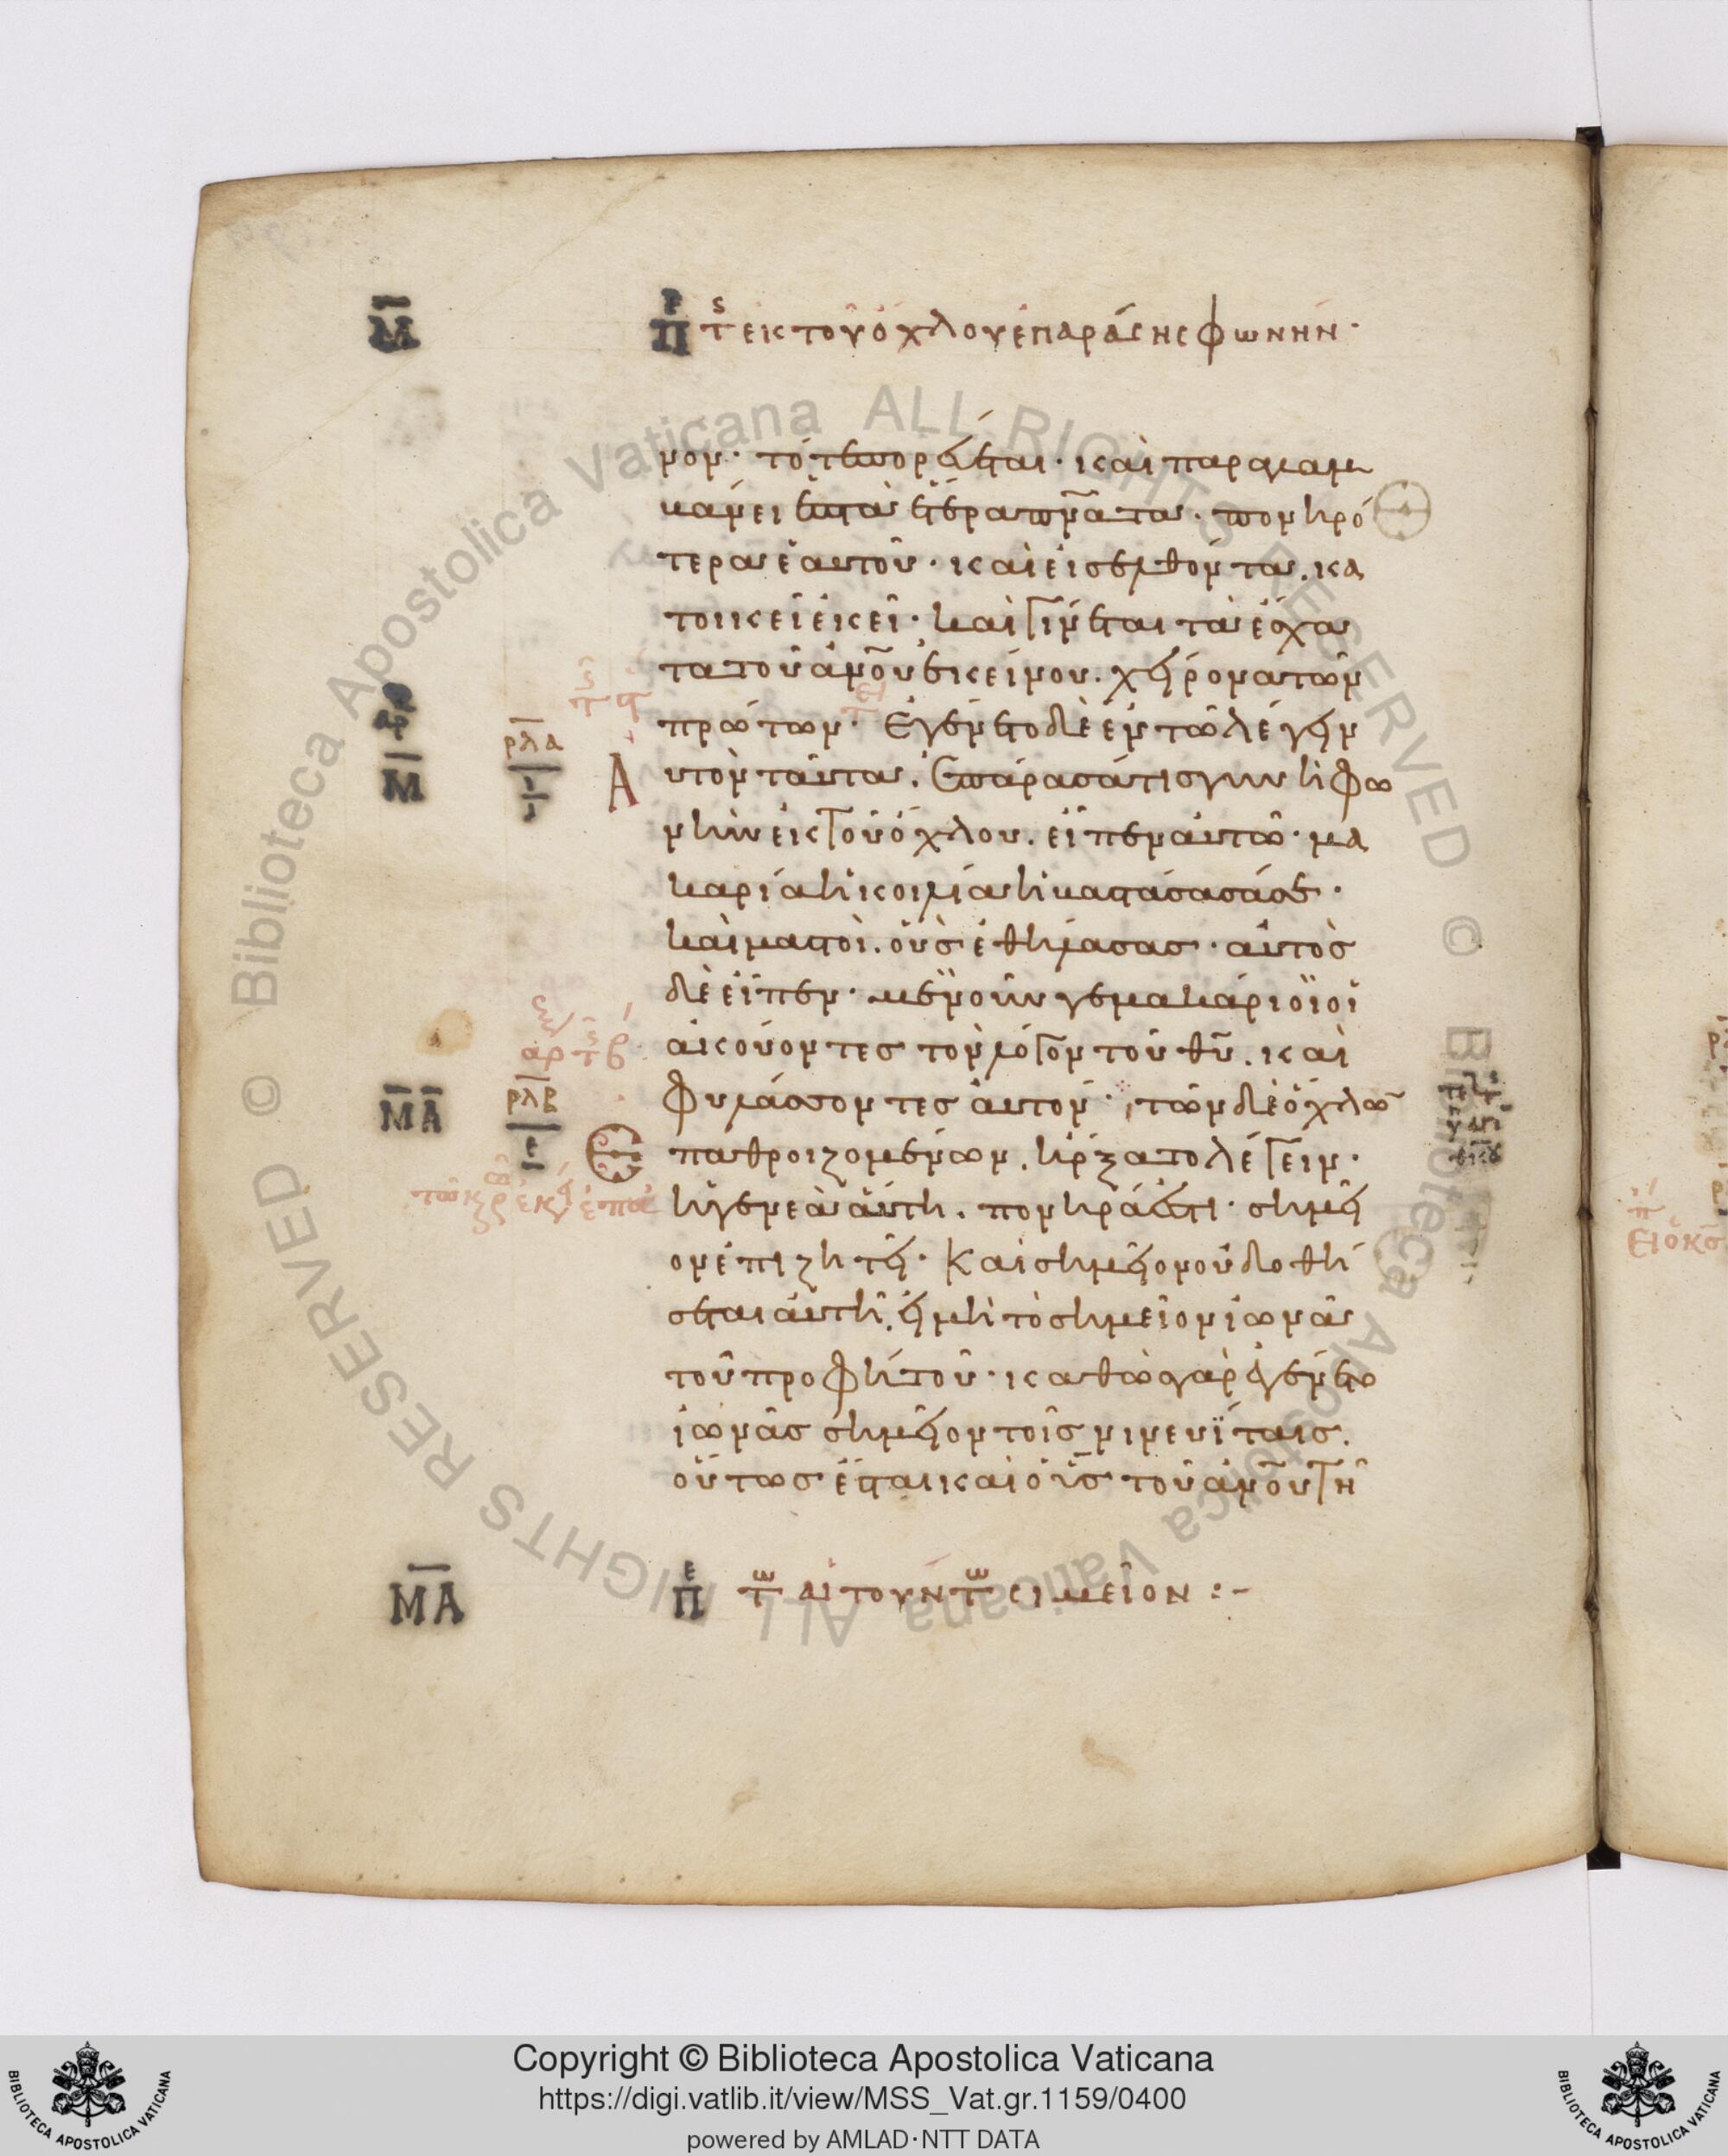 Μ
ΠΡ Τς ΕΚ ΤΟΥ ΟΧΛΟΥ ΕΠΑΡΑΣΗΣ ΦΩΝΗΝ·
μον· τότε πορεύεται· καὶ παραλαμ
βάνει ἑπτὰ ἕτερα πνᾶτα· πονηρό
τερα ἑαυτοῦ· καὶ εἰσελθόντα. κα
τοικεῖ ἐκεῖ· καὶ γίνεται τὰ ἔσχα
τα τοῦ ἀνοῦ ἐκείνου. χείρονα τῶν
πρώτων· Ἐγένετο δὲ ἐν τῶ λέγειν
Α
ρλα
Μ
υτὸν ταῦτα. ἐπάρασά τις γυνὴ φω
νὴν ἐκ τοῦ ὄχλου. εἶπεν αὐτῶ· μα
καρία ἡ κοιλία ἡ βαστάσασά σε·
καὶ μαστοὶ. οὓς ἐθήλασας· αὐτὸς
δὲ εἶπεν· μενοῦνγε μακάριοι οἱ
ἀκούοντες τὸν λόγον τοῦ θῦ. καὶ
ΜΑ
ρλβ
φυλάσσοντες αὐτόν· τῶν δὲ ὄχλω̄
Ε
παθροιζομένων. ἤρξατο λέγειν·
ἡ γενεὰ αὕτη. πονηρά ἐστι· σημεῖ
ον ἐπιζητεῖ· Καὶ σημεῖον οὐ δοθή
σεται αὐτῆ. εἰ μὴ τὸ σημεῖον ἰωνᾶ
τοῦ προφήτου· καθὼς γὰρ ἐγένετο
ἰωνᾶς σημεῖον τοῖς νινευΐταις.
οὕτως ἔσται καὶ ὁ ὑς τοῦ ἀνοῦ τῆ
ΜΑ
ΠΕ ΤΩ ΑΙΤΟΥΝΤΩ ΣΙΜΕΙΟΝ :-
Copyright © Biblioteca Apostolica Vaticana
https://digi.vatlib.it/view/MSS_Vat.gr.1159/0400
powered by AMLAD·NTT DATA
BIBLIOTECA APOSTOLICA VATICANA
BIBLIOTECA APOSTOLICA VATICANA
© Biblioteca Apostolica Vaticana ALL RIGHTS RESERVED © Biblioteca Apostolica Vaticana ALL RIGHTS RESERVED